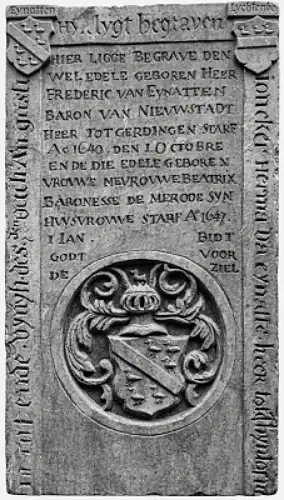 Eynatten
Lychtenbe
HY.. lygt begraven
HIER LIGGE BEGRAVE DEN
WEL EDELE GEBOREN HEER
FREDERIC VAN EYNATTEN
BARON VAN NIEUWSTADT
HEER TOT GERDINGEN STARF
Ao 1640. DEN 10 OCTOBRE
ENDE DIE EDELE GEBOREN
VROUWE MEVROUWE BEATRIX
BARONESSE DE MERODE SYN
HUSVROUWE STARF Ao 1647.
1 IAN. BIDT
GODT VOOR
DE ZIEL
joncker herma va eynatte heer